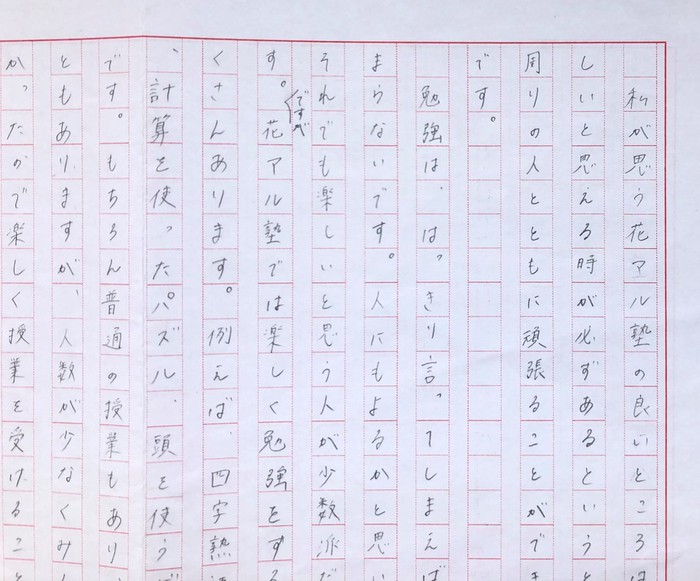 私が思う花マル塾の良いところは
しいと思える時が必ずあるという
周りの人とともに頑張ることができ
です。
勉強は、はっきり言ってしまえば
まらないです。人にもよるかと思い
それでも楽しいと思う人が少数派だ
ですが
す。花マル塾では楽しく勉強をする
くさんあります。例えば、四字熟語
、計算を使ったパズル、頭を使う
です。もちろん普通の授業もあり、
ともありますが、人数が少なくみん
かったので楽しく授業を受けること